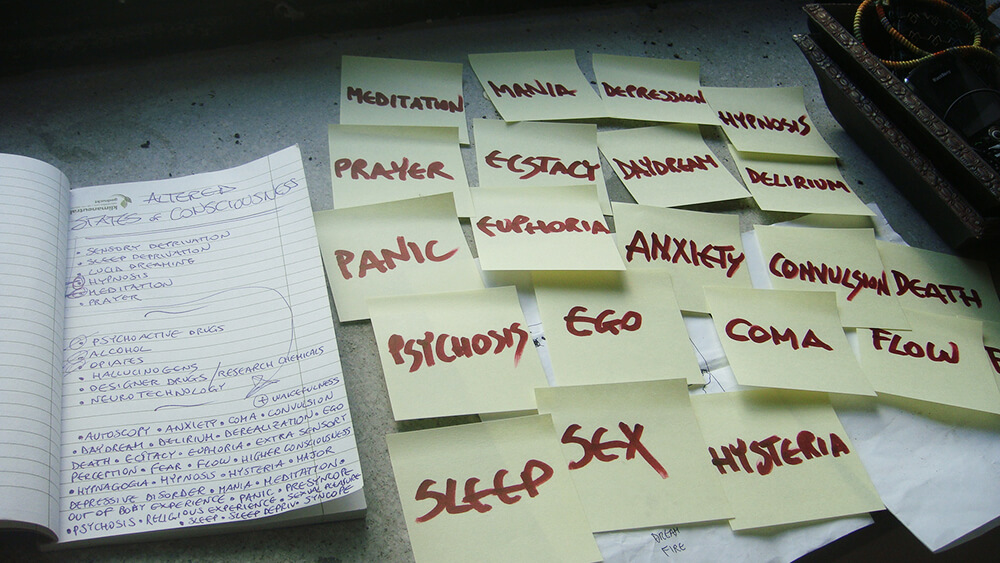 klimaneutral
ALTERED
STATES of CONSCIOUSNESS
• SENSORY DEPRIVATION
• SLEEP DEPRIVATION
• LUCID DREAMING
• HYPNOSIS
• MEDITATION
• PRAYER
• PSYCHOACTIVE DRUGS
• ALCOHOL
• OPIATES
• HALLUCINOGENS
• DESIGNER DRUGS / RESEARCH CHEMICALS
• NEUROTECHNOLOGY
+ WAKEFULNESS
• AUTOSCOPY • ANXIETY • COMA • CONVULSION
• DAYDREAM • DELIRIUM • DEREALIZATION • EGO
DEATH • ECSTACY • EUPHORIA • EXTRA SENSORY
PERCEPTION • FEAR • FLOW • HIGHER CONSCIOUSNESS
• HYPNAGOGIA • HYPNOSIS • HYSTERIA • MAJOR
DEPRESSIVE DISORDER • MANIA • MEDITATION •
OUT OF BODY EXPERIENCE • PANIC • PRESYNCOPE
• PSYCHOSIS • RELIGIOUS EXPERIENCE • SEXUAL PLEASURE
• SLEEP • SLEEP DEPRIV • SYNCOPE
MEDITATION
MANIA
DEPRESSION
HYPNOSIS
PRAYER
ECSTACY
DAYDREAM
DELIRIUM
PANIC
EUPHORIA
ANXIETY
CONVULSION
DEATH
PSYCHOSIS
EGO
COMA
FLOW
SLEEP
SEX
HYSTERIA
DREAM
FIRE